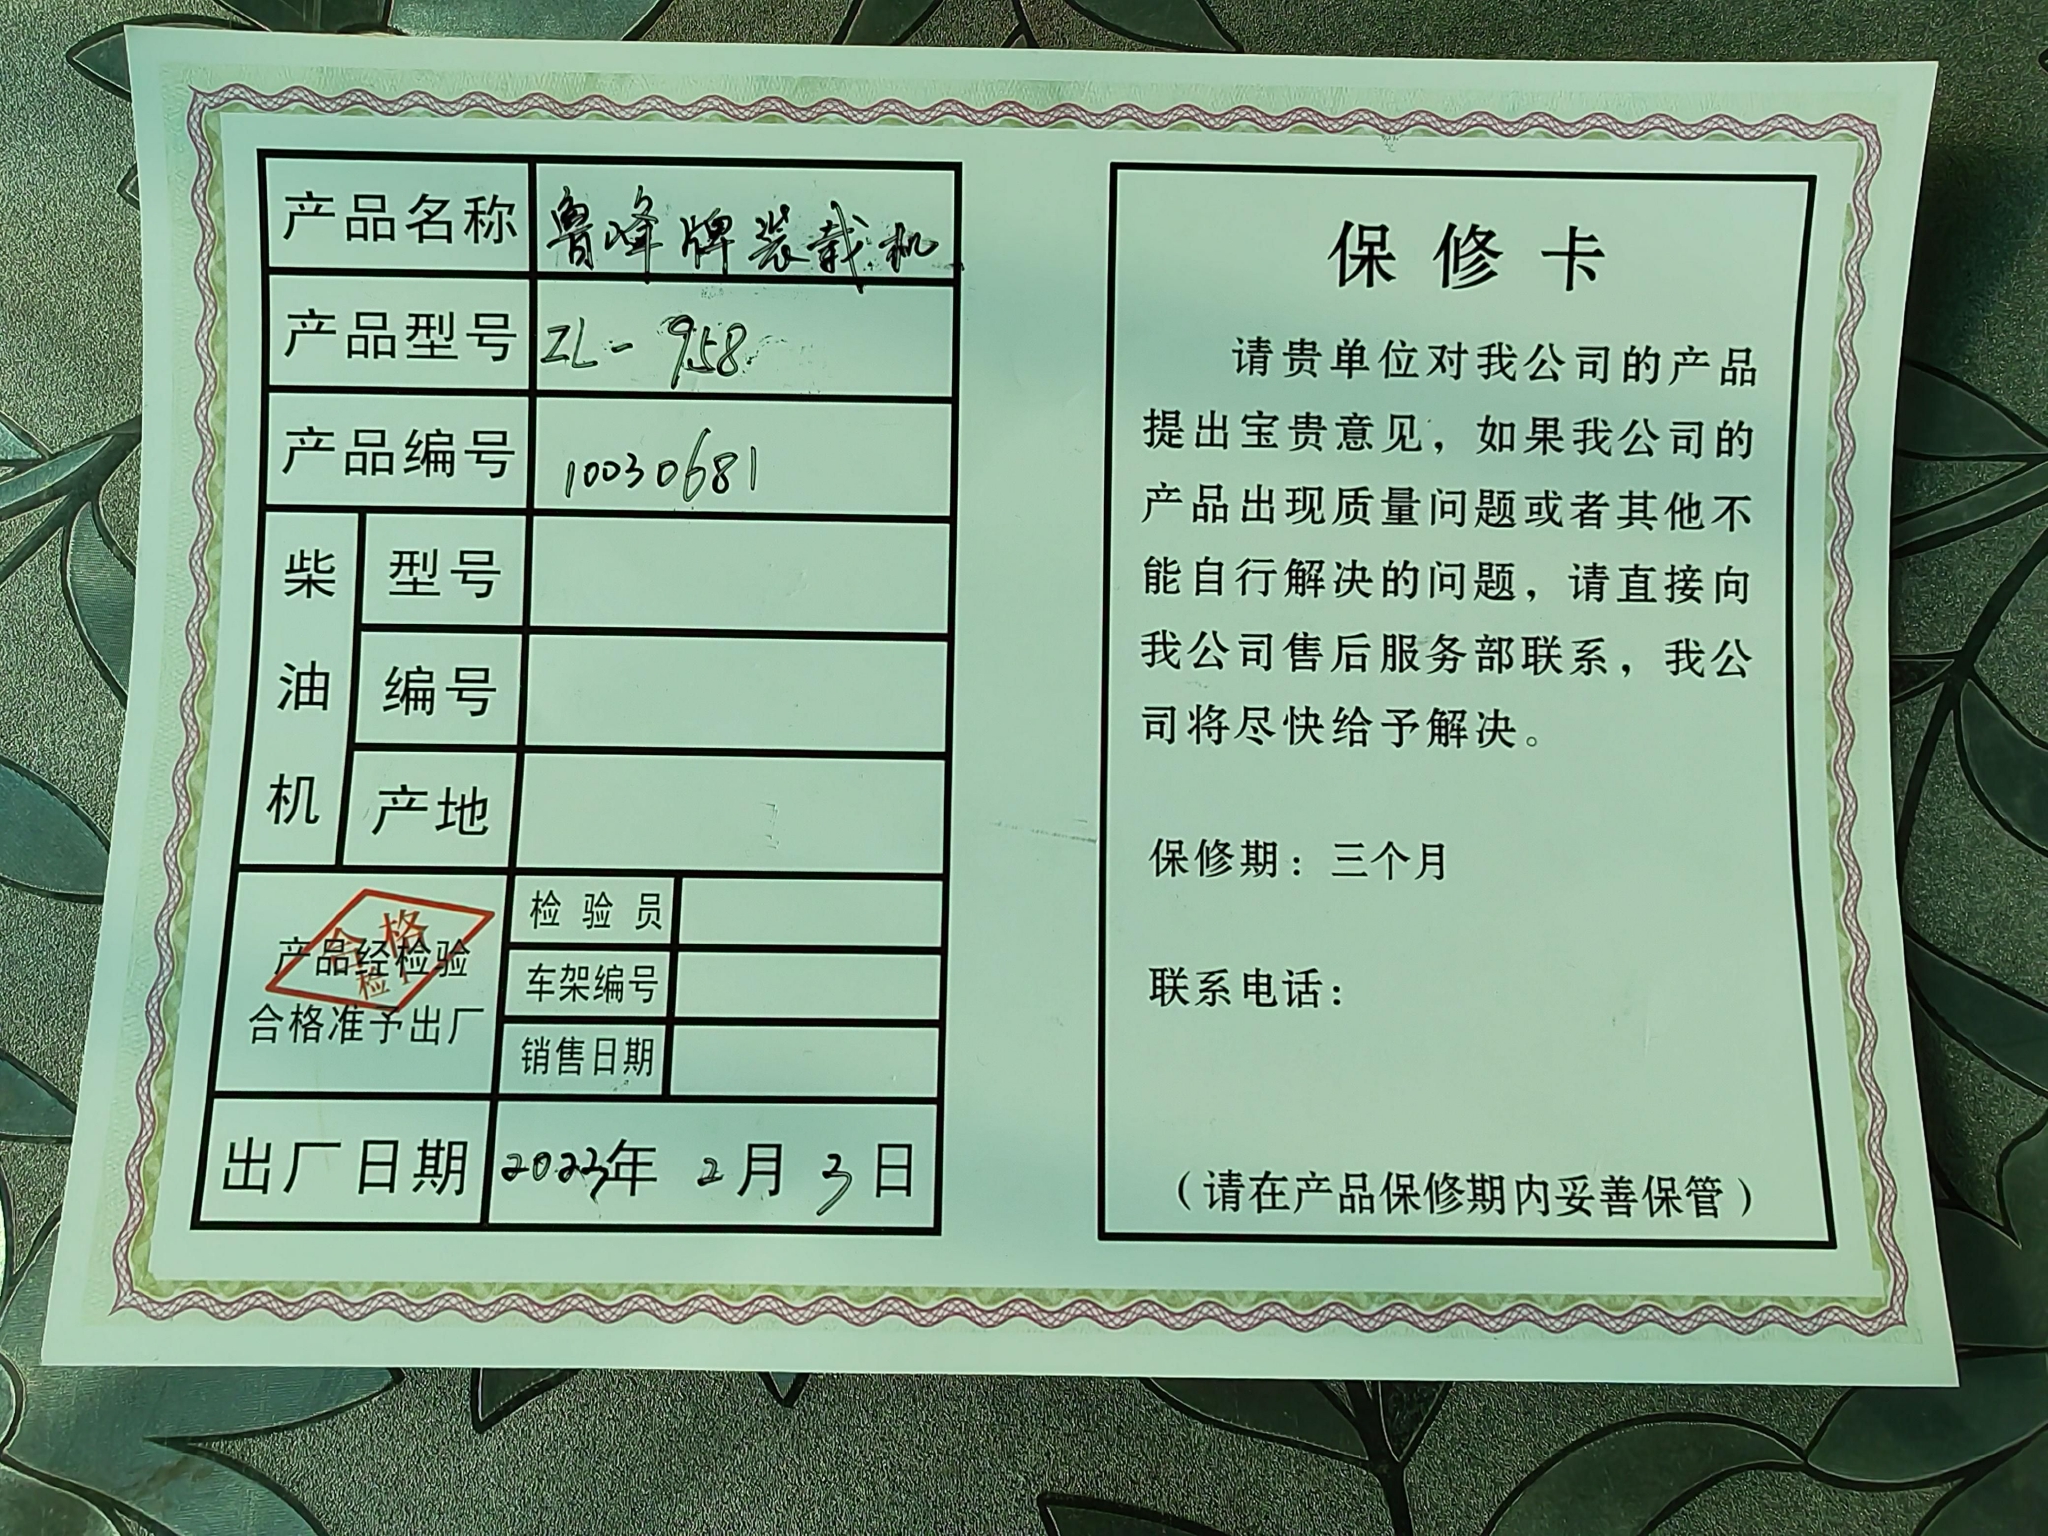 产品名称 鲁峰牌装载机
产品型号 ZL-958
产品编号 10030681
柴油机
型号
编号
产地
合格
检
产品经检验
合格准予出厂
检验员
车架编号
销售日期
出厂日期 2023年2月3日
保修卡
请贵单位对我公司的产品
提出宝贵意见，如果我公司的
产品出现质量问题或者其他不
能自行解决的问题，请直接向
我公司售后服务部联系，我公
司将尽快给予解决。
保修期：三个月
联系电话：
（请在产品保修期内妥善保管）